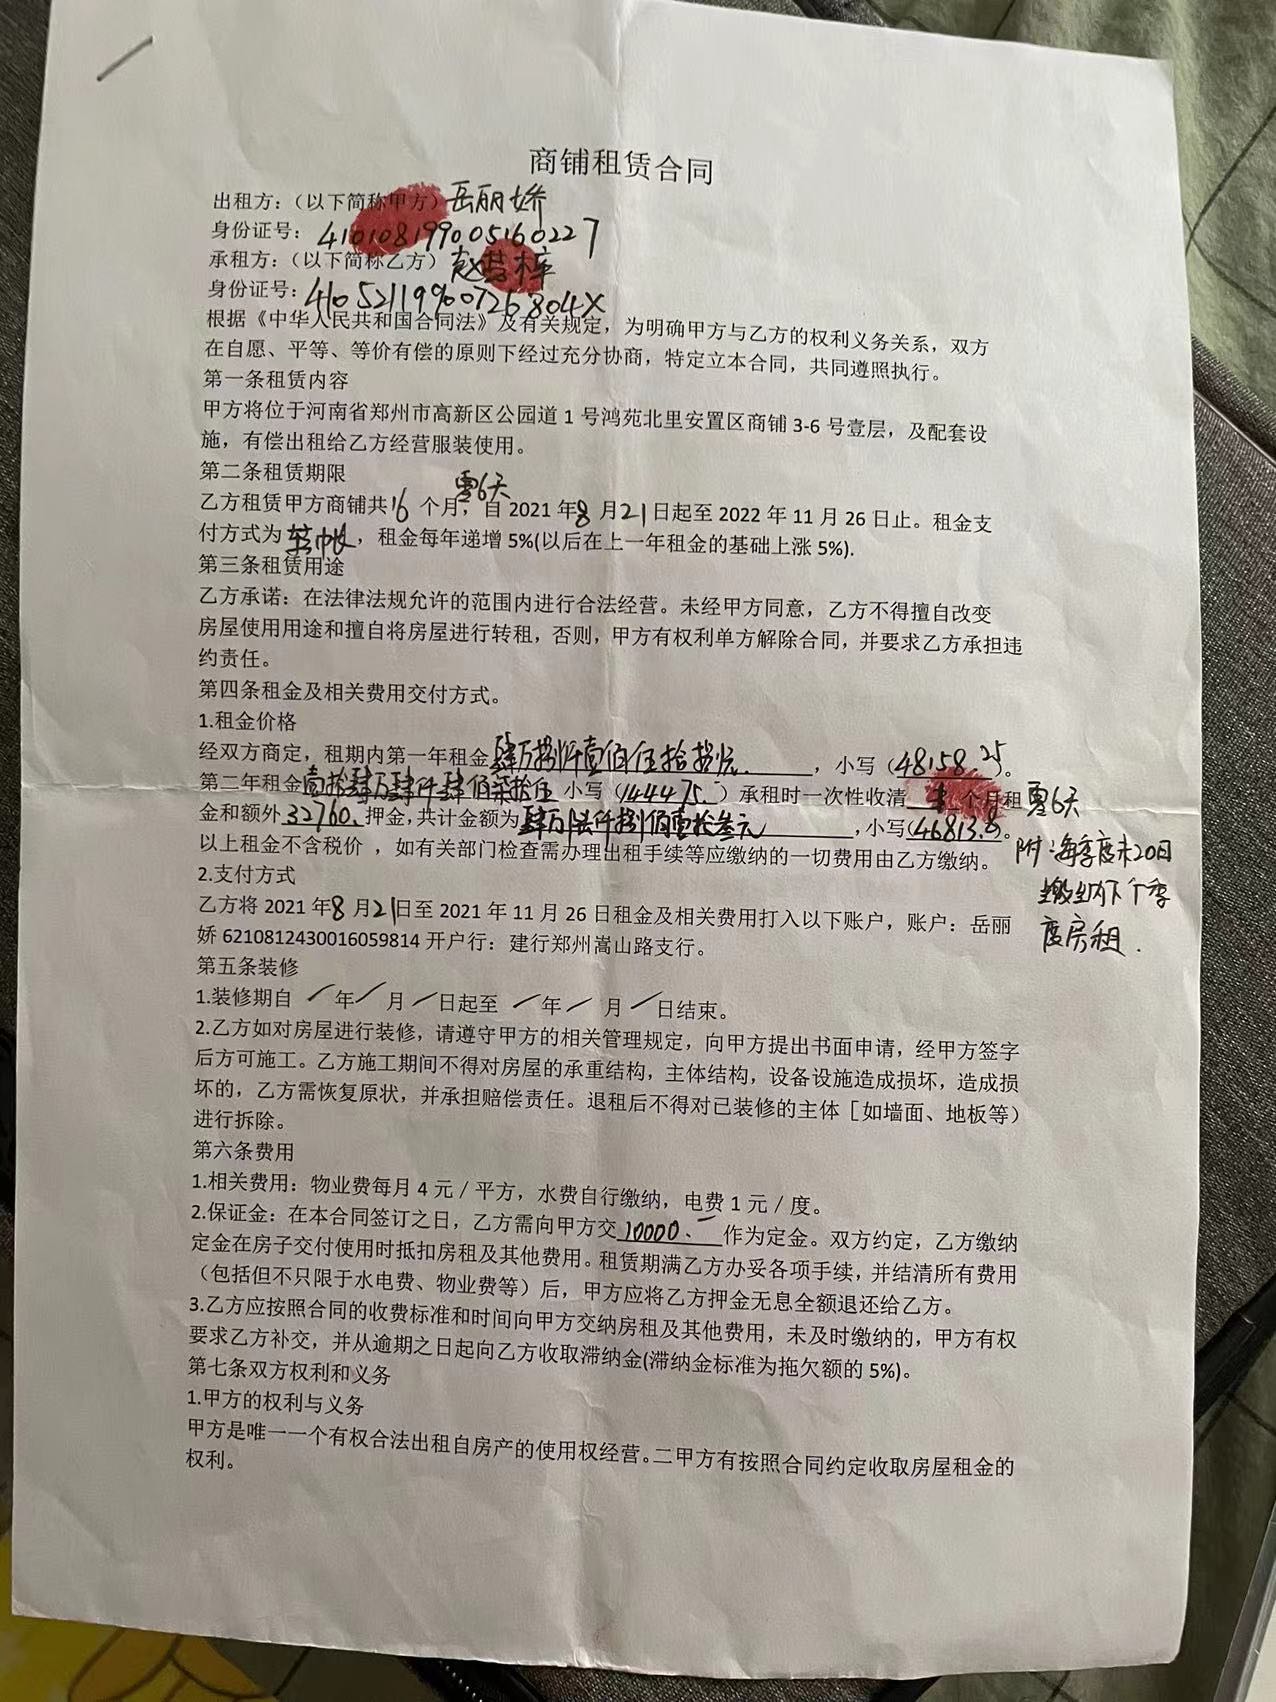 商铺租赁合同
出租方：（以下简称甲方）岳丽娇
身份证号：410108199005160227
承租方：（以下简称乙方）赵梓
身份证号：41052119900726804X
根据《中华人民共和国合同法》及有关规定，为明确甲方与乙方的权利义务关系，双方
在自愿、平等、等价有偿的原则下经过充分协商，特定立本合同，共同遵照执行。
第一条租赁内容
甲方将位于河南省郑州市高新区公园道 1 号鸿苑北里安置区商铺 3-6 号壹层，及配套设
施，有偿出租给乙方经营服装使用。
第二条租赁期限
零6天
乙方租赁甲方商铺共16 个月，自 2021 年8 月21日起至 2022 年 11 月 26 日止。租金支
付方式为 转帐，租金每年递增 5%(以后在上一年租金的基础上涨 5%).
第三条租赁用途
乙方承诺：在法律法规允许的范围内进行合法经营。未经甲方同意，乙方不得擅自改变
房屋使用用途和擅自将房屋进行转租，否则，甲方有权利单方解除合同，并要求乙方承担违
约责任。
第四条租金及相关费用交付方式。
1.租金价格
经双方商定，租期内第一年租金肆万捌仟壹佰伍拾捌元，小写（48158.25）。
第二年租金壹拾肆万肆仟肆佰柒拾伍 小写（144475.）承租时一次性收清 个月租 零6天
金和额外32760.押金，共计金额为肆万陆仟捌佰壹拾叁元，小写(46813.8)。
以上租金不含税价 ，如有关部门检查需办理出租手续等应缴纳的一切费用由乙方缴纳。
附：每季度末20日
缴纳下个季
度房租.
2.支付方式
乙方将 2021 年8 月21日至 2021 年 11 月 26 日租金及相关费用打入以下账户，账户：岳丽
娇 6210812430016059814 开户行：建行郑州嵩山路支行。
第五条装修
1.装修期自 / 年 / 月 / 日起至 / 年 / 月 / 日结束。
2.乙方如对房屋进行装修，请遵守甲方的相关管理规定，向甲方提出书面申请，经甲方签字
后方可施工。乙方施工期间不得对房屋的承重结构，主体结构，设备设施造成损坏，造成损
坏的，乙方需恢复原状，并承担赔偿责任。退租后不得对已装修的主体［如墙面、地板等）
进行拆除。
第六条费用
1.相关费用：物业费每月 4 元／平方，水费自行缴纳，电费 1 元／度。
2.保证金：在本合同签订之日，乙方需向甲方交10000.-作为定金。双方约定，乙方缴纳
定金在房子交付使用时抵扣房租及其他费用。租赁期满乙方办妥各项手续，并结清所有费用
（包括但不只限于水电费、物业费等）后，甲方应将乙方押金无息全额退还给乙方。
3.乙方应按照合同的收费标准和时间向甲方交纳房租及其他费用，未及时缴纳的，甲方有权
要求乙方补交，并从逾期之日起向乙方收取滞纳金(滞纳金标准为拖欠额的 5%)。
第七条双方权利和义务
1.甲方的权利与义务
甲方是唯一一个有权合法出租自房产的使用权经营。二甲方有按照合同约定收取房屋租金的
权利。